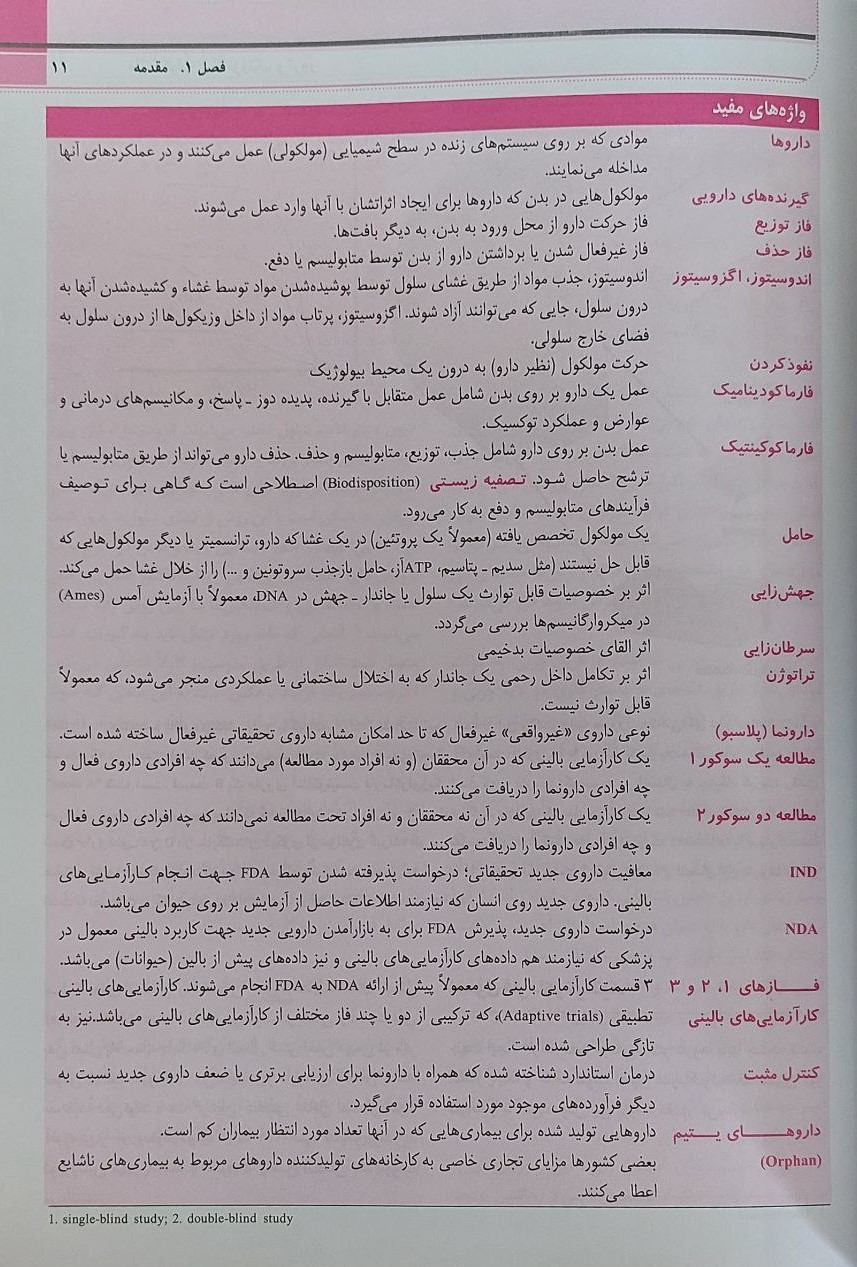 فصل ۱. مقدمه ۱۱
واژه‌های مفید
داروها موادی که بر روی سیستم‌های زنده در سطح شیمیایی (مولکولی) عمل می‌کنند و در عملکردهای آنها
مداخله می‌نمایند.
گیرنده‌های دارویی مولکول‌هایی در بدن که داروها برای ایجاد اثراتشان با آنها وارد عمل می‌شوند.
فاز توزیع فاز حرکت دارو از محل ورود به بدن، به دیگر بافت‌ها.
فاز حذف فاز غیرفعال شدن یا برداشتن دارو از بدن توسط متابولیسم یا دفع.
اندوسیتوز، اگزوسیتوز اندوسیتوز، جذب مواد از طریق غشای سلول توسط پوشیده‌شدن مواد توسط غشاء و کشیده‌شدن آنها به
درون سلول، جایی که می‌توانند آزاد شوند. اگزوسیتوز، پرتاب مواد از داخل وزیکول‌ها از درون سلول به
فضای خارج سلولی.
نفوذکردن حرکت مولکول (نظیر دارو) به درون یک محیط بیولوژیک
فارماکودینامیک عمل یک دارو بر روی بدن شامل عمل متقابل با گیرنده، پدیده دوز ـ پاسخ، و مکانیسم‌های درمانی و
عوارض و عملکرد توکسیک.
فارماکوکینتیک عمل بدن بر روی دارو شامل جذب، توزیع، متابولیسم و حذف. حذف دارو می‌تواند از طریق متابولیسم یا
ترشح حاصل شود. تصفیه زیستی (Biodisposition) اصطلاحی است که گاهی برای توصیف
فرآیندهای متابولیسم و دفع به کار می‌رود.
حامل یک مولکول تخصص یافته (معمولاً یک پروتئین) در یک غشا که دارو، ترانسمیتر یا دیگر مولکول‌هایی که
قابل حل نیستند (مثل سدیم ـ پتاسیم، ATPآز، حامل بازجذب سروتونین و ...) را از خلال غشا حمل می‌کند.
جهش‌زایی اثر بر خصوصیات قابل توارث یک سلول یا جاندار ـ جهش در DNA، معمولاً با آزمایش آمس (Ames)
در میکروارگانیسم‌ها بررسی می‌گردد.
سرطان‌زایی اثر القای خصوصیات بدخیمی
تراتوژن اثر بر تکامل داخل رحمی یک جاندار که به اختلال ساختمانی یا عملکردی منجر می‌شود، که معمولاً
قابل توارث نیست.
دارونما (پلاسبو) نوعی داروی «غیرواقعی» غیرفعال که تا حد امکان مشابه داروی تحقیقاتی غیرفعال ساخته شده است.
مطالعه یک سوکور ۱ یک کارآزمایی بالینی که در آن محققان (و نه افراد مورد مطالعه) می‌دانند که چه افرادی داروی فعال و
چه افرادی دارونما را دریافت می‌کنند.
مطالعه دو سوکور ۲ یک کارآزمایی بالینی که در آن نه محققان و نه افراد تحت مطالعه نمی‌دانند که چه افرادی داروی فعال
و چه افرادی دارونما را دریافت می‌کنند.
IND معافیت داروی جدید تحقیقاتی؛ درخواست پذیرفته شدن توسط FDA جهت انجام کارآزمایی‌های
بالینی. داروی جدید روی انسان که نیازمند اطلاعات حاصل از آزمایش بر روی حیوان می‌باشد.
NDA درخواست داروی جدید، پذیرش FDA برای به بازارآمدن دارویی جدید جهت کاربرد بالینی معمول در
پزشکی که نیازمند هم داده‌های کارآزمایی‌های بالینی و نیز داده‌های پیش از بالین (حیوانات) می‌باشد.
فازهای ۱، ۲ و ۳ ۳ قسمت کارآزمایی بالینی که معمولاً پیش از ارائه NDA به FDA انجام می‌شوند. کارآزمایی‌های بالینی
کارآزمایی‌های بالینی تطبیقی (Adaptive trials)، که ترکیبی از دو یا چند فاز مختلف از کارآزمایی‌های بالینی می‌باشد.نیز به
تازگی طراحی شده است.
کنترل مثبت درمان استاندارد شناخته شده که همراه با دارونما برای ارزیابی برتری یا ضعف داروی جدید نسبت به
دیگر فرآورده‌های موجود مورد استفاده قرار می‌گیرد.
داروهای یتیم داروهایی تولید شده برای بیماری‌هایی که در آنها تعداد مورد انتظار بیماران کم است.
(Orphan) بعضی کشورها مزایای تجاری خاصی به کارخانه‌های تولیدکننده داروهای مربوط به بیماری‌های ناشایع
اعطا می‌کنند.
1. single-blind study; 2. double-blind study